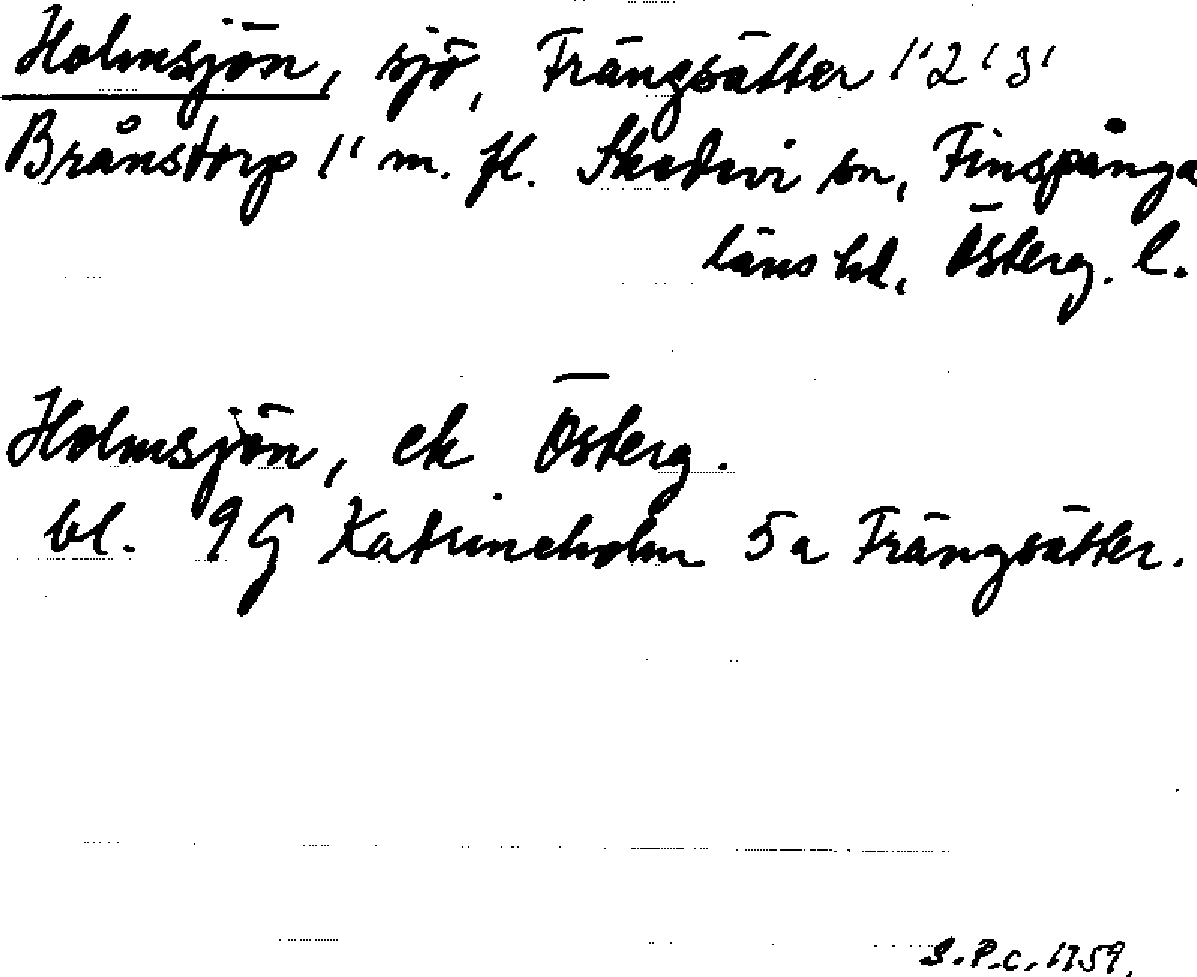 Holmsjön, sjö, Trängsätter 1'2'3'
Brånstorp 1' m. fl. Skedevi sn, Finspånga
läns hd, Österg. l.
Holmsjön, ek Österg.
bl. 9G Katrineholm 5a Trängsätter.
S.P.c. 1759.